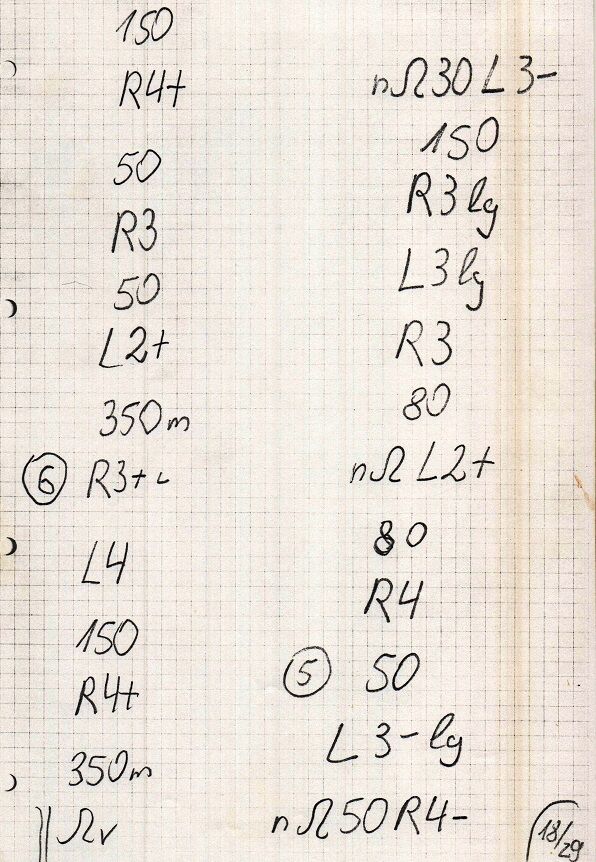 150
R4+
50
R3
50
L2+
350m
⑥ R3+ L
L4
150
R4+
350m
|| Ωv
nΩ30 L3-
150
R3 lg
L3 lg
R3
80
nΩ L2+
80
R4
⑤ 50
L3- lg
nΩ50 R4-
18/29